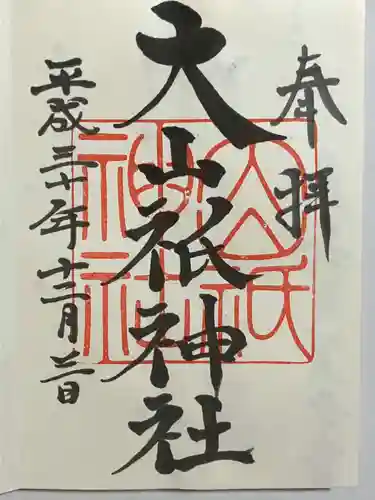 奉拝
大山祇神社
平成三十年十二月 日
山祇
神社